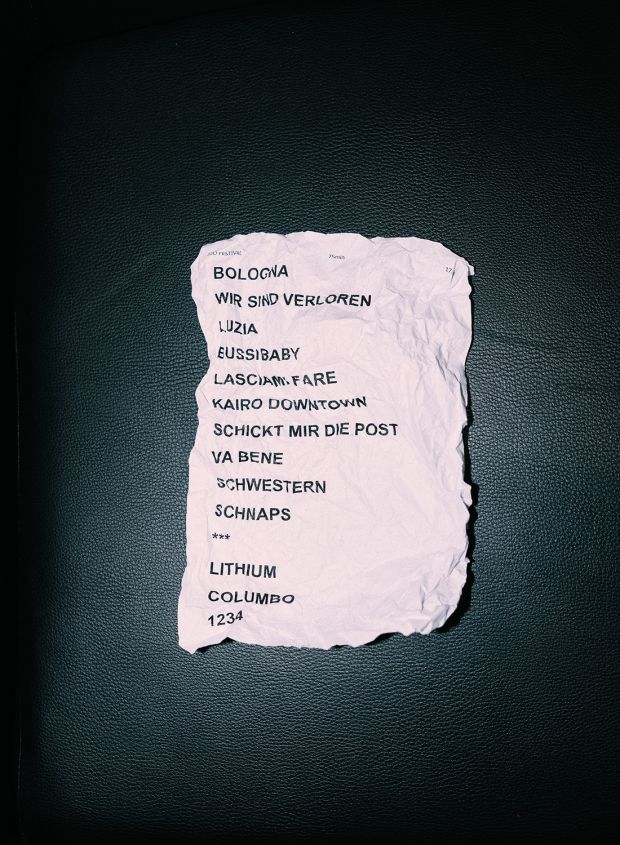 FESTIVAL 75min
BOLOGNA
WIR SIND VERLOREN
LUZIA
BUSSIBABY
LASCIAMI FARE
KAIRO DOWNTOWN
SCHICKT MIR DIE POST
VA BENE
SCHWESTERN
SCHNAPS
***
LITHIUM
COLUMBO
1234